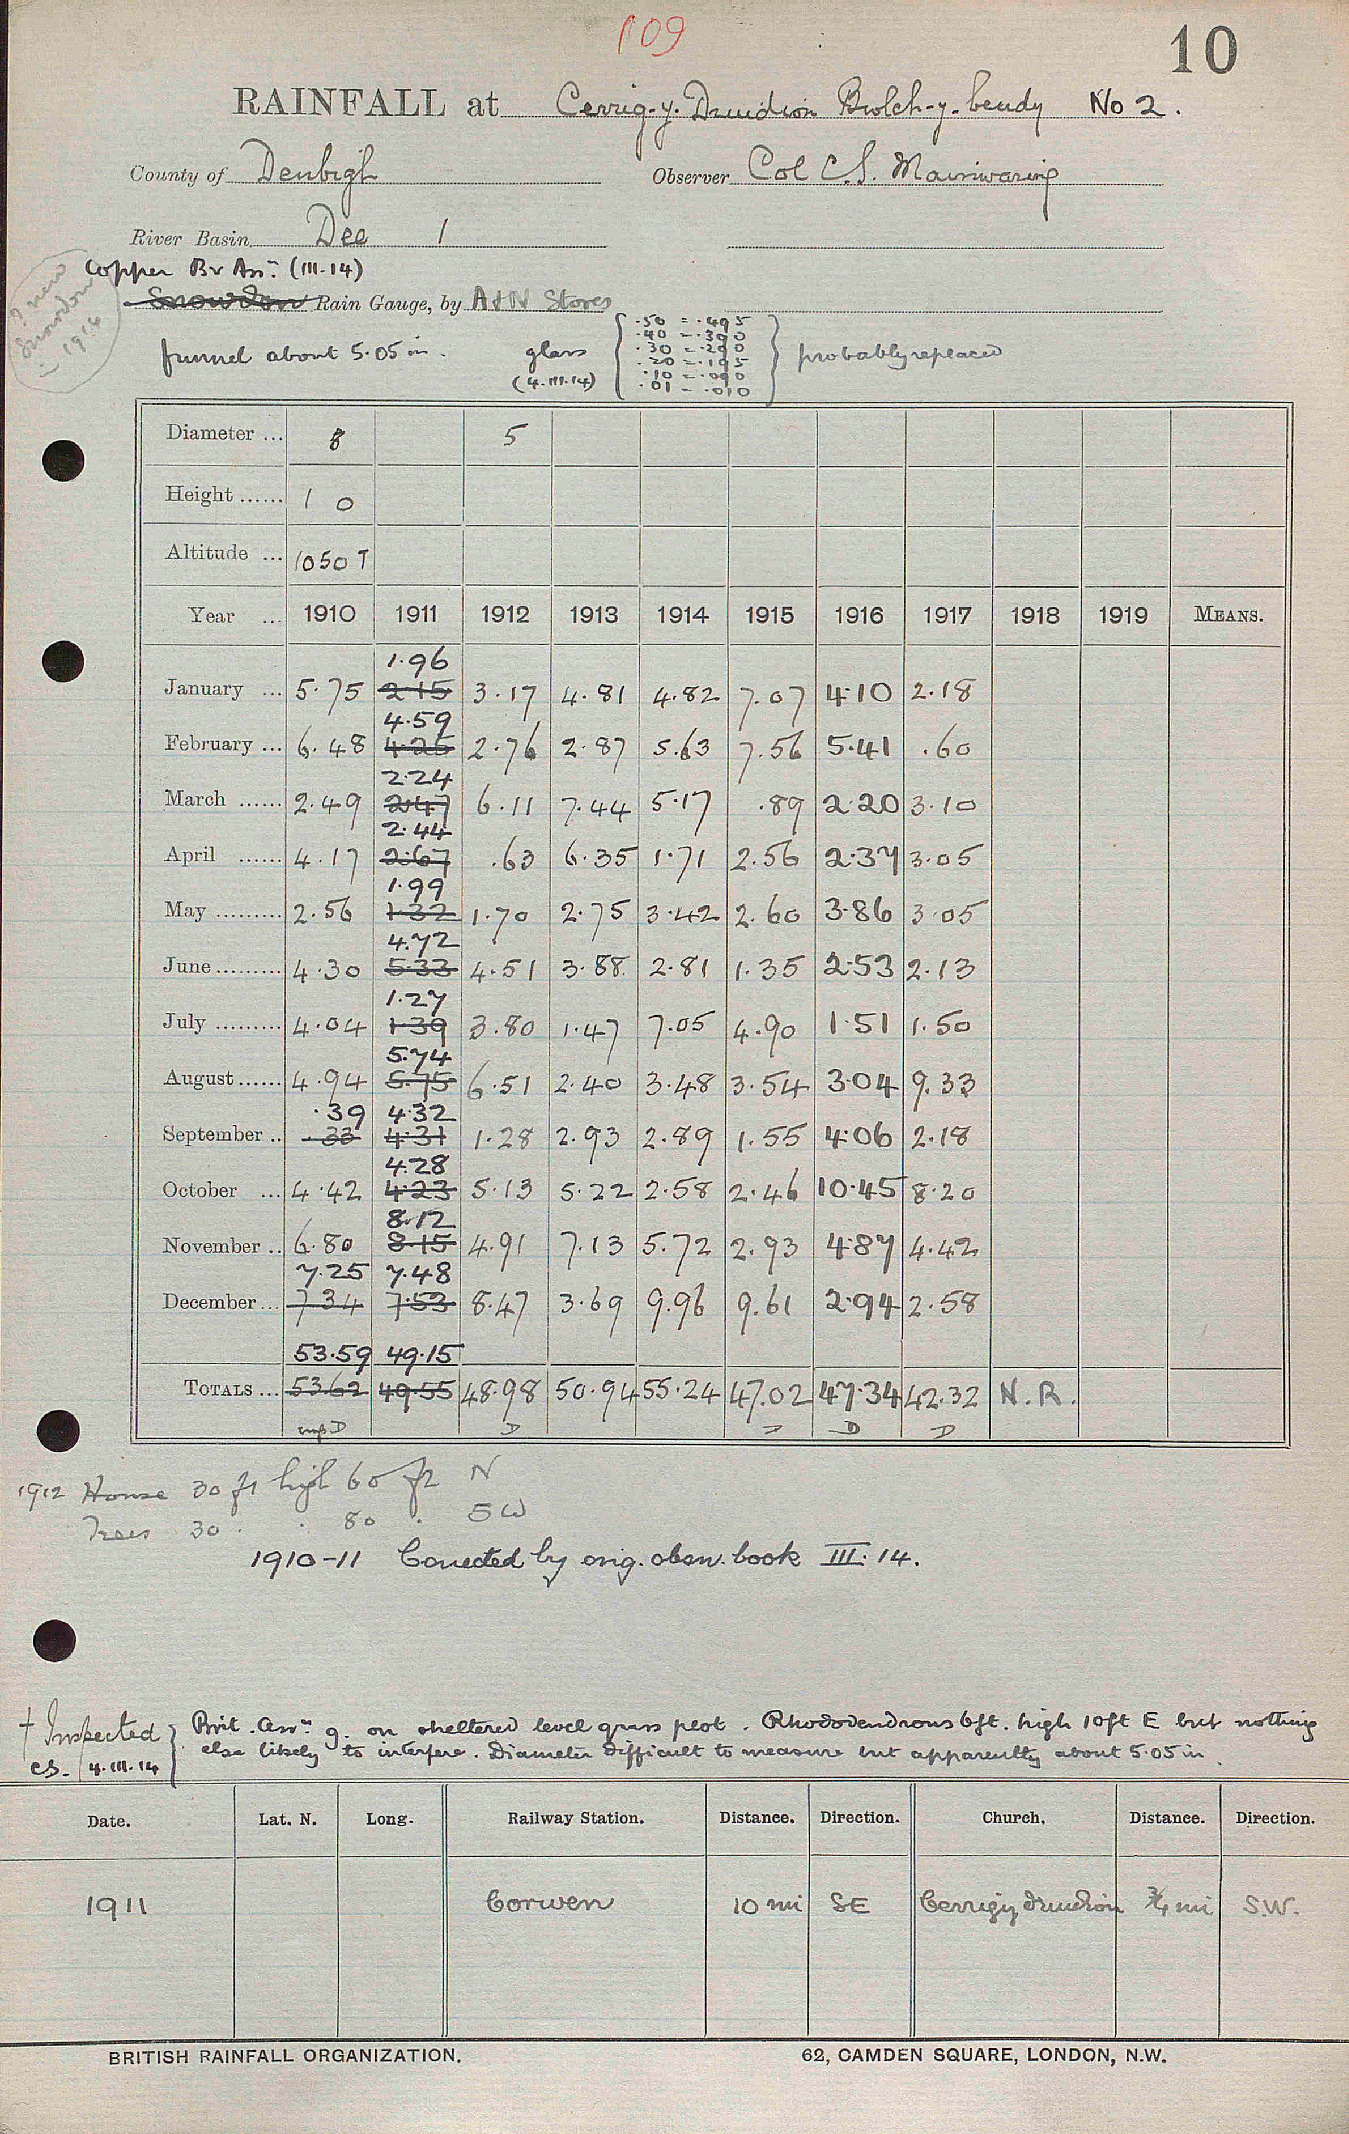 109
10
RAINFALL at Cerrig-y-Druidion Bwlch-y-beudy No 2.
County of Denbigh Observer Col C.S. Mainwaring
River Basin Dee 1
Copper Br Assn. (III-14)
Snowdon Rain Gauge, by A & N Stores
? new Snowdon in 1916
funnel about 5.05 in. glass (4.III.14)
.50 = .495
.40 = .390
.30 = .290
.20 = .195
.10 = .090
.01 = .010
probably replaced
Diameter ... 8 5
Height ...... 1 0
Altitude ... 1050 T
Year ... 1910 1911 1912 1913 1914 1915 1916 1917 1918 1919 MEANS.
1.96
January ... 5.75 2.15 3.17 4.81 4.82 7.07 4.10 2.18
4.59
February ... 6.48 4.25 2.76 2.87 5.63 7.56 5.41 .60
2.24
March ...... 2.49 2.47 6.11 7.44 5.17 .89 2.20 3.10
2.44
April ...... 4.17 2.67 .63 6.35 1.71 2.56 2.37 3.05
1.99
May ......... 2.56 1.32 1.70 2.75 3.42 2.60 3.86 3.05
4.72
June ......... 4.30 5.33 4.51 3.88 2.81 1.35 2.53 2.13
1.27
July ......... 4.04 1.39 3.80 1.47 7.05 4.90 1.51 1.50
5.74
August ...... 4.94 5.75 6.51 2.40 3.48 3.54 3.04 9.33
.39 4.32
September .. .33 4.31 1.28 2.93 2.89 1.55 4.06 2.18
4.28
October ... 4.42 4.23 5.13 5.22 2.58 2.46 10.45 8.20
8.12
November .. 6.80 8.15 4.91 7.13 5.72 2.93 4.87 4.42
7.25 7.48
December ... 7.34 7.53 8.47 3.69 9.96 9.61 2.94 2.58
53.59 49.15
TOTALS ... 53.62 49.55 48.98 50.94 55.24 47.02 47.34 42.32 N.R.
D D D D D
1912 House 30 ft high 60 ft N
Trees 30 . . 80 . SW
1910-11 Corrected by orig. obsn. book III.14.
† Inspected Brit. Assn. g. on sheltered level grass plot. Rhododendrons 6ft. high 10ft E but nothing
CS. 4.III.14 else likely to interfere. Diameter difficult to measure but apparently about 5.05 in.
Date. Lat. N. Long. Railway Station. Distance. Direction. Church. Distance. Direction.
1911 Corwen 10 mi SE Cerrigydruidion ¾ mi S.W.
BRITISH RAINFALL ORGANIZATION. 62, CAMDEN SQUARE, LONDON, N.W.